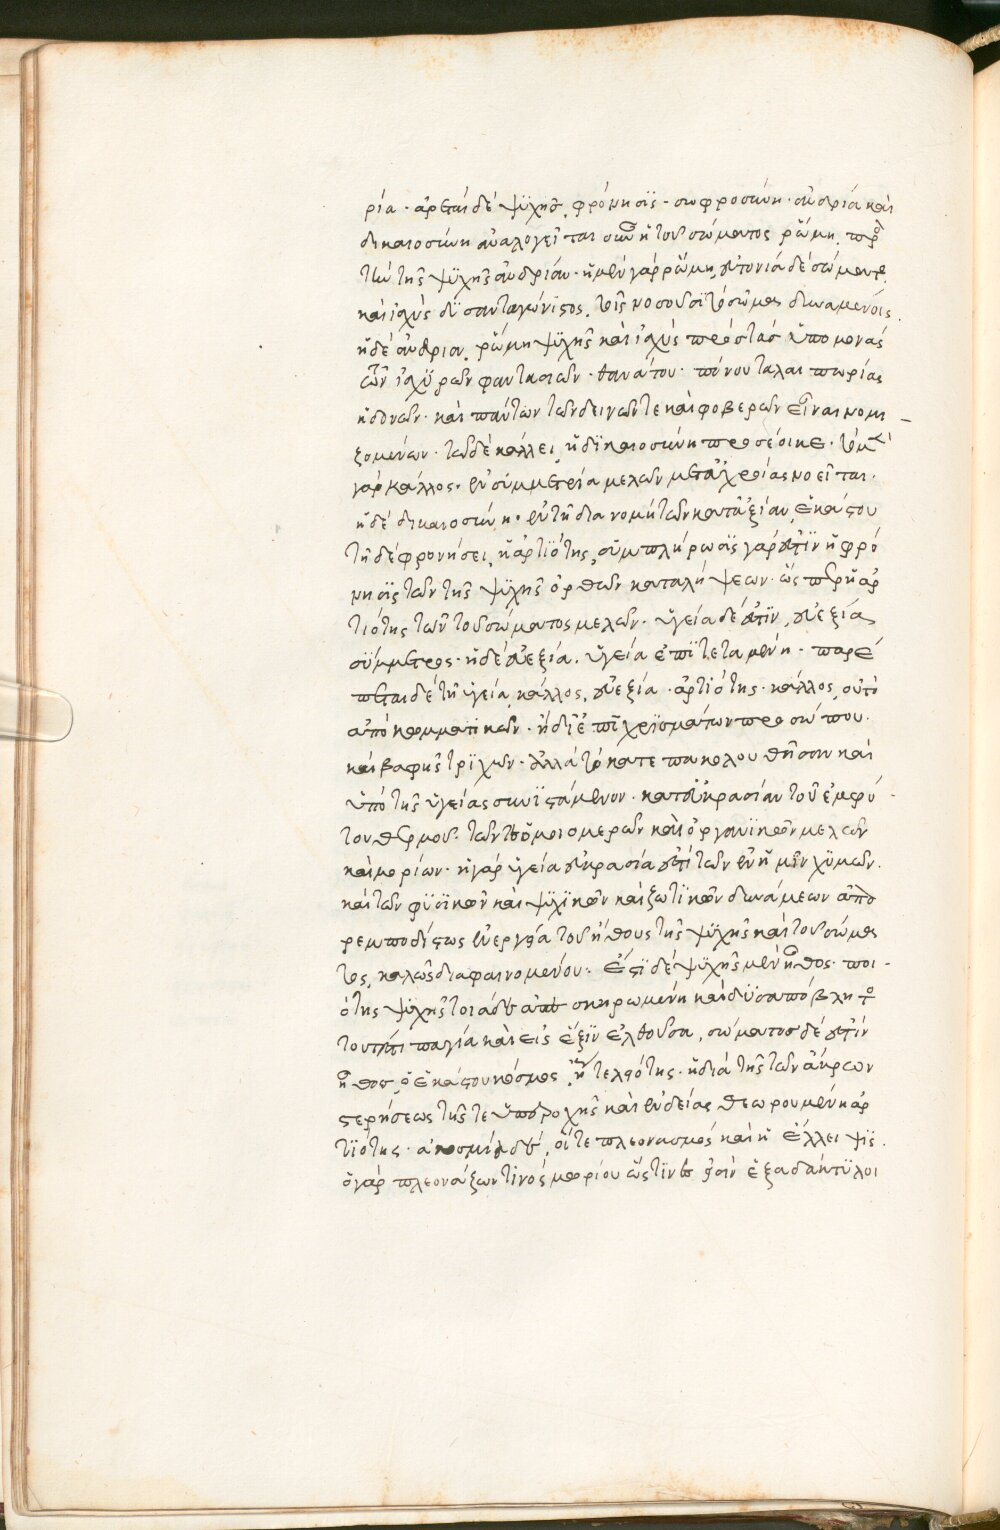 ρία · ἀρεταὶ δέ ψϋχῆς, φρόνησϊς · σωφροσύνη · ἀνδρία καὶ
δικαιοσύνη ἀναλογεῖται οὖν ἡ τοῦ σώματος ῥώμη, πρὸς
τὴν τῆς ψϋχῆς ἀνδρίαν · ἡ μὲν γὰρ ῥώμη, εὐτονιά δέ σώματος
καὶ ἰσχὺς δϋσανταγώνιστος, τοῖς νοσοῦσϊ τὸ σῶμα δυναμένοις.
ἡ δέ ἀνδρια, ῥώμη ψϋχῆς καὶ ἰσχὺς πρὸς τὰσ ὑπομονάς
τῶν ἰσχϋρῶν φαντασιῶν · θανάτου · πόνου ταλαιπωρίας
ἡδονῶν · καὶ πάντων τῶν δεινῶν τε καὶ φοβερῶν εἶναι νομι-
ζομένων · τῶ δέ κάλλει, ἡ δϊκαιοσύνη προσέοικε · τὸ μὲν
γὰρ κάλλος · ἐν σϋμμετρία μελῶν μετ' εὐχροίας νοεῖται ·
ἡ δέ δικαιοσύνη · ἐν τῆ διανομῆ τῶν κατ' ἀξίαν, ἑκάστου
τῆ δέ φρονήσει, ἡ ἀρτϊότης, σϋμπλήρωσϊς γάρ ἐστϊν ἡ φρό
νησϊς τῶν τῆς ψϋχῆς ὀρθῶν καταλήψεων · ὥς περ ἡ ἀρ
τιότης τῶν τοῦ σώματος μελῶν · ὑγεία δέ ἐστϊν, εὐεξία
σϋμμετρος · ἡ δέ εὐεξία · ὑγεία ἐπϊτεταμένη · παρέ
πεται δέ τῆ ὑγεία, κάλλος, εὐεξία · ἀρτϊότης · κάλλος, οὐ τὸ
ἀπὸ κομμωτϊκῶν · ἢ δι' ἐπϊχρϊσμάτων προσώπου ·
καὶ βαφῆς τρϊχῶν · ἀλλὰ τὸ κατεπακολουθῆσαν καὶ
ὑπὸ τῆς ὑγείας συνϊστάμενον · κατ' εὐκρασίαν τοῦ ἐμφύ
του θερμοῦ · τῶν τε ὁμοιομερῶν καὶ ὀργανϊκῶν μελῶν
καὶ μορίων · ἡ γὰρ ὑγεία εὐκρασία ἐστὶ τῶν ἐν ἡμῖν χϋμῶν ·
καὶ τῶν φϋσϊκῶν καὶ ψϋχϊκῶν καὶ ζωτϊκῶν δυνάμεων ἀπα
ρεμποδίστως ἐνεργεία τοῦ ἤθους τῆς ψϋχῆς καὶ τοῦ σώμα
τος, καλῶς διαφαινομένου · ἔστϊ δέ ψϋχῆς μὲν ἦθος · ποι-
ότης ψϋχῆς τοιάδε σκιρωμένη καὶ δϋσαπόβλητος
τουτέστι παγία καὶ εἰς ἕξϊν ἐλθοῦσα, σώματοσ δέ ἐστὶν
ἦθος, ὁ ἑκάστου κόσμος, ἢ τελειότης · ἡ διὰ τῆς τῶν ἄκρων
στερήσεως τῆς τε ὑπεροχῆς καὶ ἐνδείας θεωρουμένη ἀρ
τϊότης · ἀκοσμία δέ, ὅ τε πλεονασμός καὶ ἡ ἔλλειψϊς ·
ὁ γὰρ πλεονάζων τϊνός μορίου ὥς τϊνές εἰσὶν ἑξαδάκτϋλοι